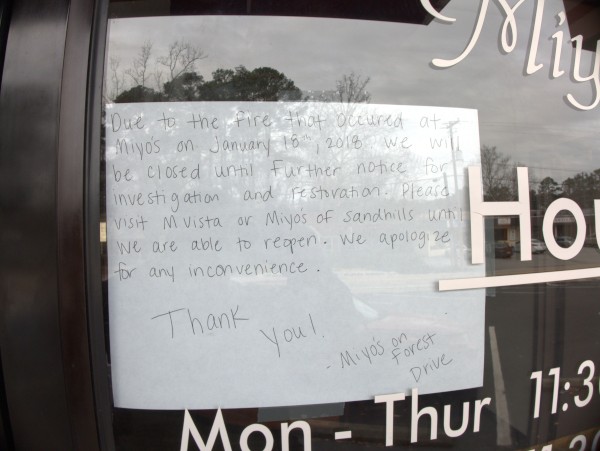 Miy
Due to the fire that occured at
Miyo's on January 18th, 2018 we will
be closed until further notice for
investigation and restoration. Please
visit M Vista or Miyo's of Sandhills until
we are able to reopen. We apologize
for any inconvenience.
Thank you!
- Miyo's on
Forest
Drive
Hou
Mon - Thur 11:3